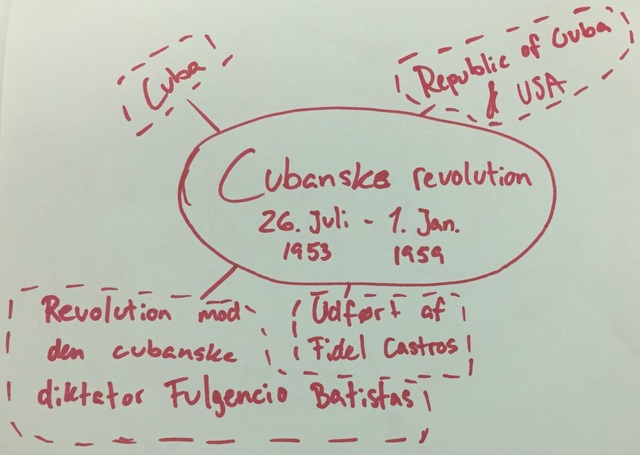 Cuba
Republic of Cuba
& USA
Cubanske revolution
26. Juli - 1. Jan.
1953 1959
Revolution mod
den cubanske
diktator Fulgencio Batistas
Udført af
Fidel Castros